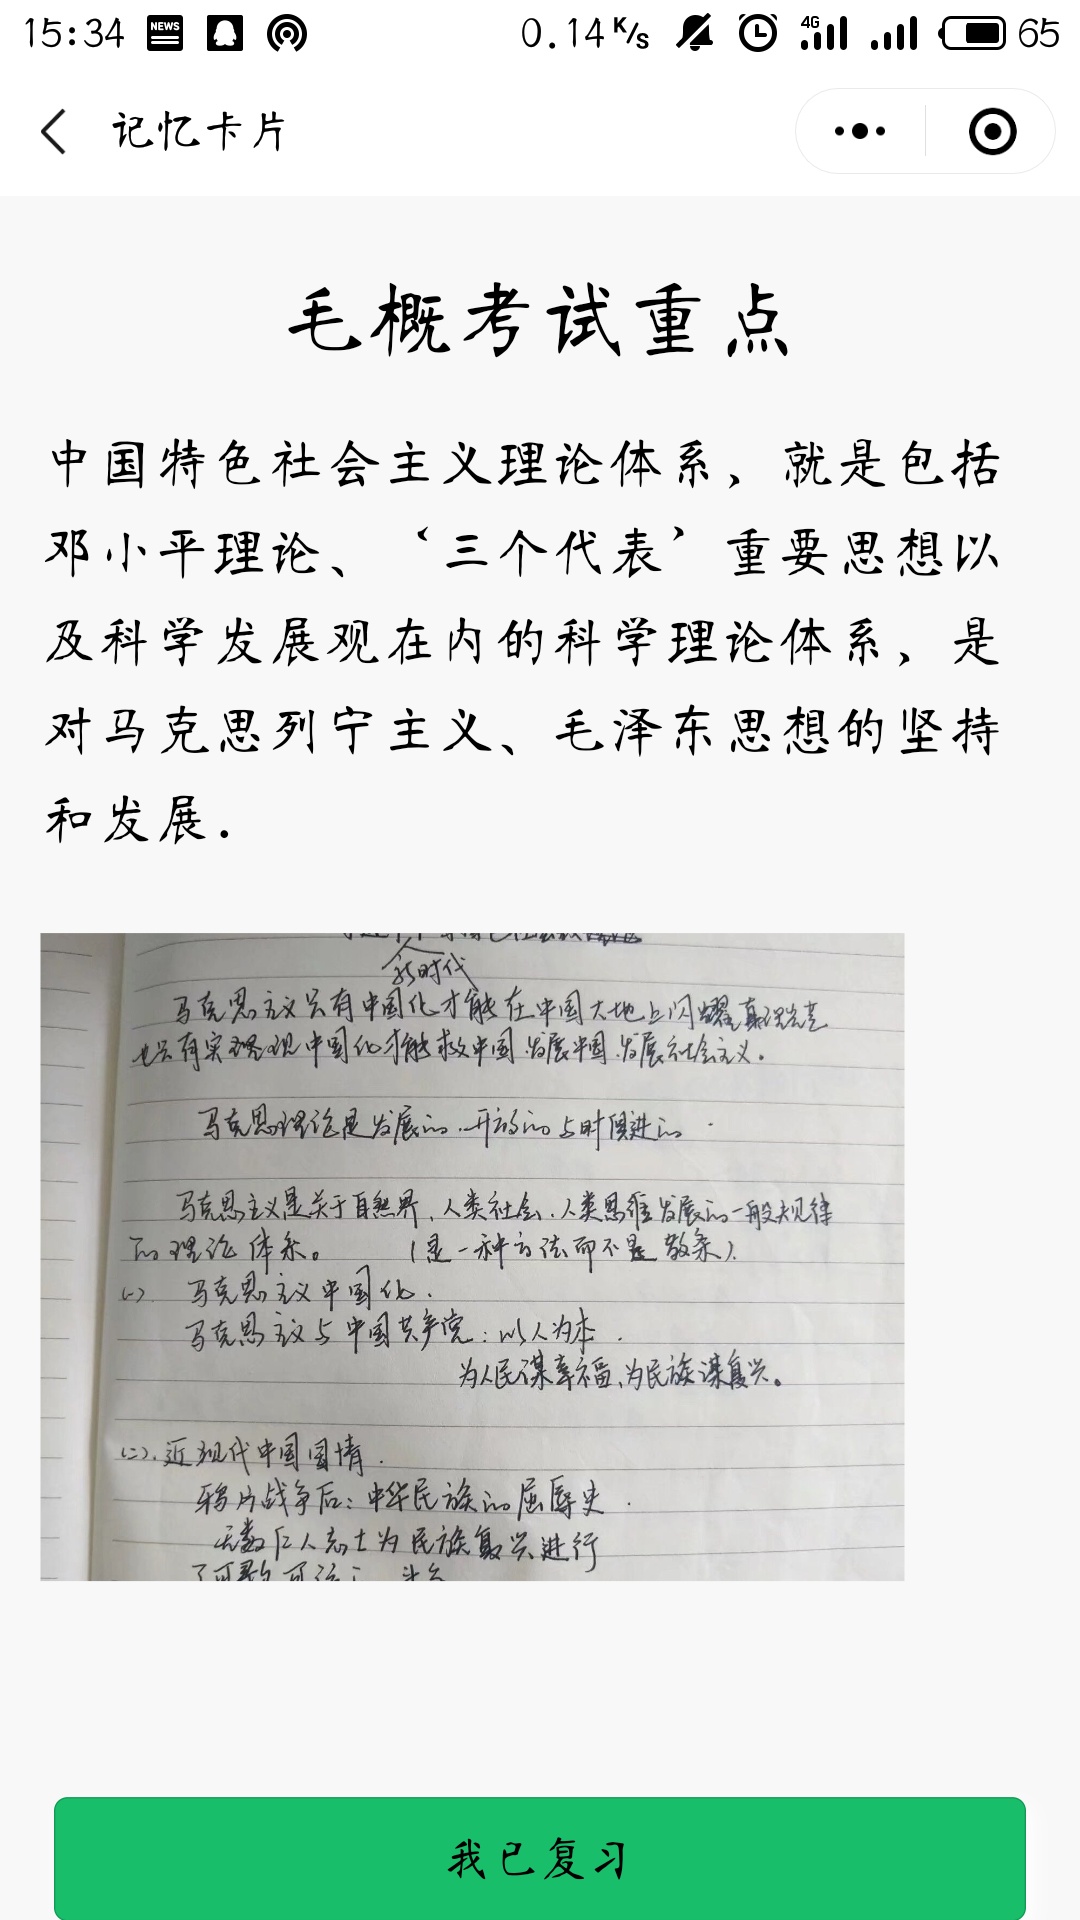 15:34
NEWS
0.14 K/s
4G
65
记忆卡片
毛概考试重点
中国特色社会主义理论体系，就是包括
邓小平理论、‘三个代表’重要思想以
及科学发展观在内的科学理论体系，是
对马克思列宁主义、毛泽东思想的坚持
和发展.
新时代
马克思主义只有中国化才能在中国大地上闪耀真理光芒
也只有实现中国化才能救中国.发展中国.发展社会主义.
马克思理论是发展的.开放的与时俱进的.
马克思主义是关于自然界、人类社会、人类思维发展的一般规律
的理论体系。(是一种方法而不是教条).
(一) 马克思主义中国化.
马克思主义与中国共产党:以人为本.
为人民谋幸福、为民族谋复兴。
(二).近现代中国国情.
鸦片战争后:中华民族的屈辱史.
无数仁人志士为民族复兴进行
我已复习